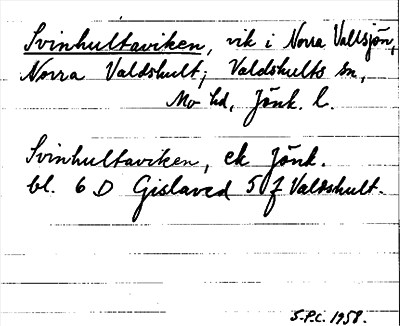 Svinhultaviken, vik i Norra Vallsjön,
Norra Valdshult; Valdshults sn,
Mo hd, Jönk. l.
Svinhultaviken, ek Jönk.
bl. 6 D Gislaved 5 f Valdshult.
S.P.C. 1958.